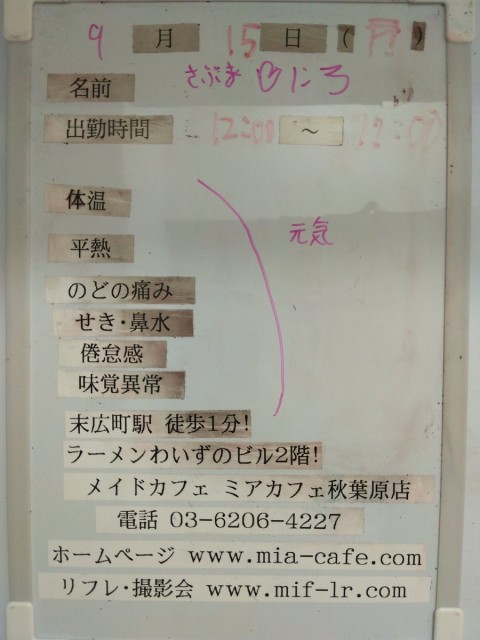 9月 15日 ( )
名前 にころ
出勤時間 12:00 ～
体温
平熱
元気
のどの痛み
せき・鼻水
倦怠感
味覚異常
末広町駅 徒歩1分!
ラーメンわいずのビル2階!
メイドカフェ ミアカフェ秋葉原店
電話 03-6206-4227
ホームページ www.mia-cafe.com
リフレ・撮影会 www.mif-lr.com